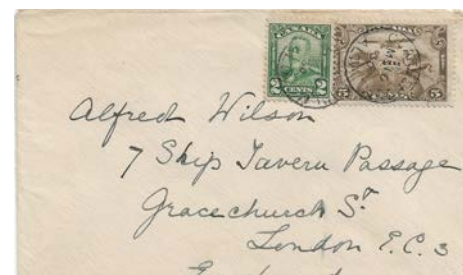 CANADA
2 CENTS 2
CANADA
5 5
Alfred Wilson
7 Ship Tavern Passage
Gracechurch St
London E.C. 3
England